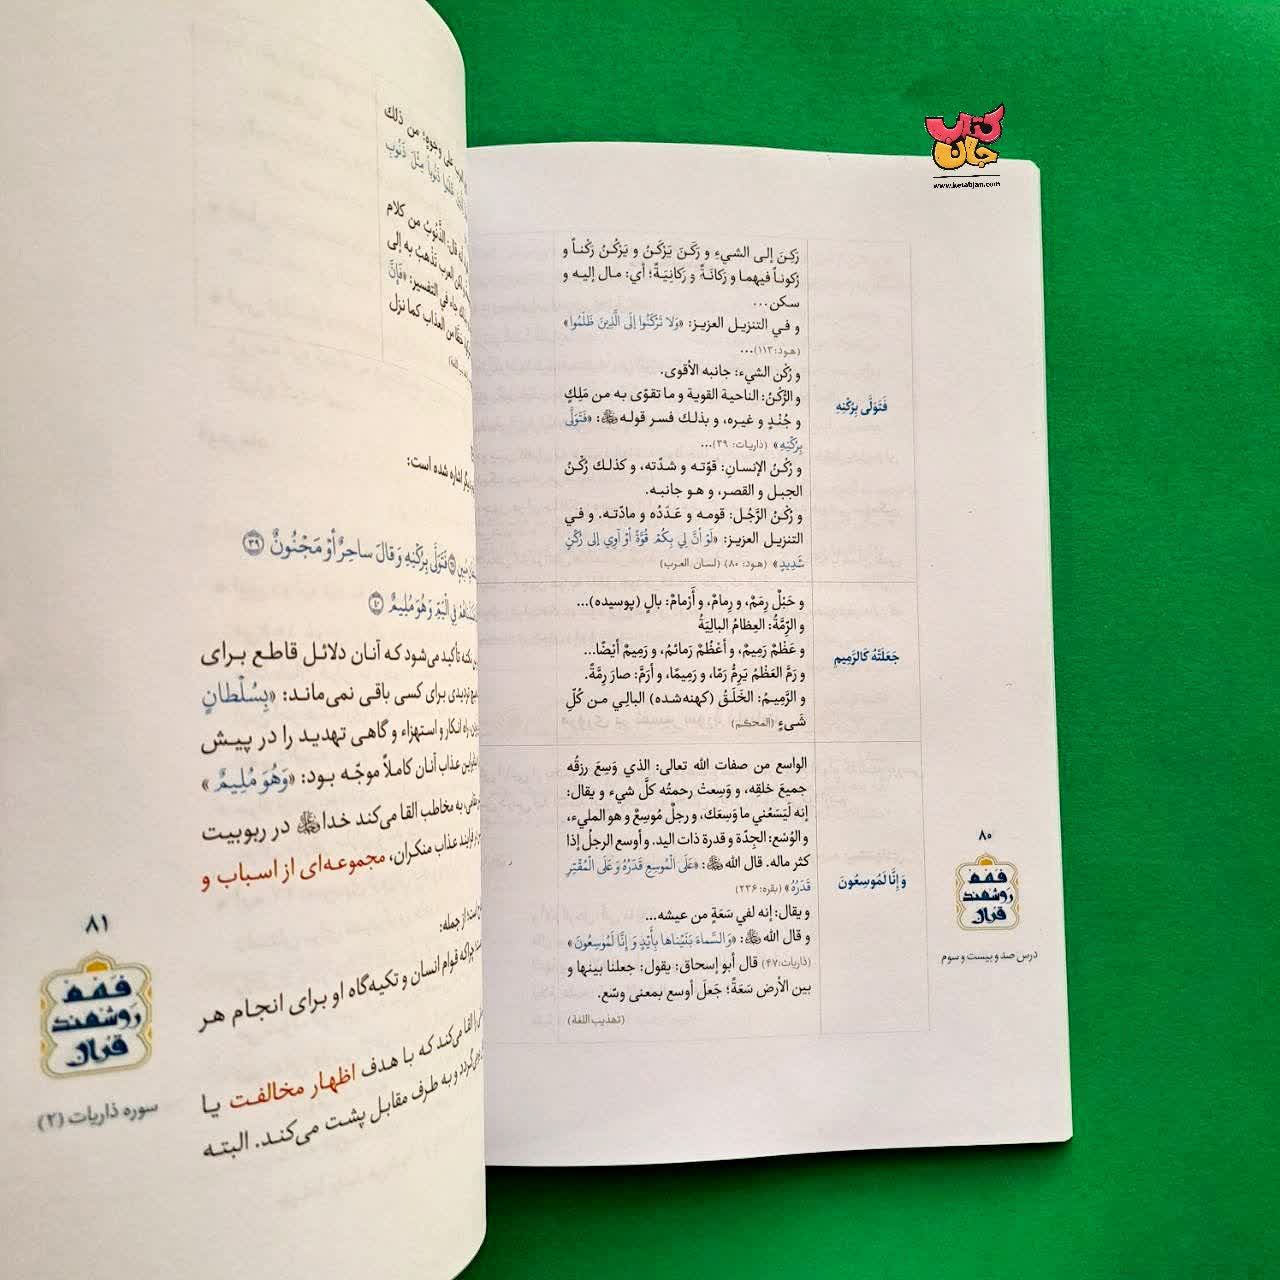 کتاب
جان
www.ketabjan.com
رَکِنَ إلی الشيءِ و رَکَنَ یَرْکَنُ و یَرْکُنُ رَکْناً و
رُکوناً فیهما و رَکانَةً و رَکانِیَةً؛ أي: مال إلیه و
سکن...
و في التنزیل العزیز: «وَلا تَرْکَنُوا إِلَی الَّذِینَ ظَلَمُوا»
(هود: ۱۱۳)...
و رُکْن الشيء: جانبه الأقوی.
و الرُّکْنُ: الناحیة القویة و ما تقوّی به من مَلِكٍ
و جُنْدٍ و غیره، و بذلك فسر قوله: «فَتَوَلَّی
بِرُکْنِهِ» (ذاریات: ۳۹)...
و رُکْنُ الإنسانِ: قوّته و شدّته، و کذلك رُکْنُ
الجبل و القصر، و هو جانبه.
و رُکْنُ الرَّجُل: قومه و عَدَدُه و مادّته. و في
التنزیل العزیز: «لَوْ أَنَّ لِي بِکُمْ قُوَّةً أَوْ آوِي إِلی رُکْنٍ
شَدِیدٍ» (هود: ۸۰) (لسان العرب)
فَتَوَلَّی بِرُکْنِهِ
و حَبْلٌ رِمَمٌ، و رِمامٌ، و أَرْمامٌ: بالٍ (پوسیده)...
و الرِّمَّةُ: العِظامُ البالِیَةُ
و عَظْمٌ رَمِیمٌ، و أعْظُمٌ رَمائمُ، و رَمِیمٌ أیْضًا...
و رَمَّ العَظْمُ یَرِمُّ رَمًّا، و رَمِیمًا، و أرَمَّ: صارَ رِمَّةً.
و الرَّمِیمُ: الخَلَقُ (کهنه‌شده) البالِي من کُلِّ
شَيءٍ (المحکم)
جَعَلَتْهُ کَالرَّمِیمِ
الواسع من صفات الله تعالی: الذي وَسِعَ رزقُه
جمیعَ خلقِه، و وَسِعتْ رحمتُه کلَّ شيء و یقال:
إنه لَیَسَعُني ما وَسِعَك، و رجلٌ مُوسِعٌ و هو المليء،
و الوُسْع: الجِدّة و قدرة ذات الید. و أوسع الرجلُ إذا
کثر ماله. قال الله: «عَلَی الْمُوسِعِ قَدَرُهُ وَ عَلَی الْمُقْتِرِ
قَدَرُهُ» (بقره: ۲۳۶)
و یقال: إنه لفي سَعَةٍ من عیشه...
و قال الله: «وَالسَّماءَ بَنَیْناها بِأَیْدٍ وَ إِنَّا لَمُوسِعُونَ»
(ذاریات: ۴۷) قال أبو إسحاق: یقول: جعلنا بینها و
بین الأرض سَعَةً؛ جَعلَ أوسع بمعنی وسّع.
(تهذیب اللغة)
وَ إِنَّا لَمُوسِعُونَ
۸۰
فقه
روشمند
قرآن
درس صد و بیست و سوم
وجوهٍ؛ من ذلك
ذَنُوباً مِثْلَ ذَنُوبِ
قال: الذَّنُوبُ من کلام
العرب تَذْهبُ به إلی
جاء في التفسیر: «فَإِنَّ
من العذاب کما نزل
اشاره شده است:
فَتَوَلَّی بِرُکْنِهِ وَ قالَ ساحِرٌ أَوْ مَجْنُونٌ ۳۹
فِي الْیَمِّ وَ هُوَ مُلِیمٌ ۴۰
نکته تأکید می‌شود که آنان دلائل قاطع برای
تردیدی برای کسی باقی نمی‌ماند: «بِسُلْطانٍ
راه انکار و استهزاء و گاهی تهدید را در پیش
عذاب آنان کاملاً موجّه بود: «وَ هُوَ مُلِیمٌ»
به مخاطب القا می‌کند خدا در ربوبیت
فرایند عذاب منکران، مجموعه‌ای از اسباب و
از جمله:
چراکه قوام انسان و تکیه‌گاه او برای انجام هر
را القا می‌کند که با هدف اظهار مخالفت یا
و به طرف مقابل پشت می‌کند. البته
۸۱
فقه
روشمند
قرآن
سوره ذاریات (۲)